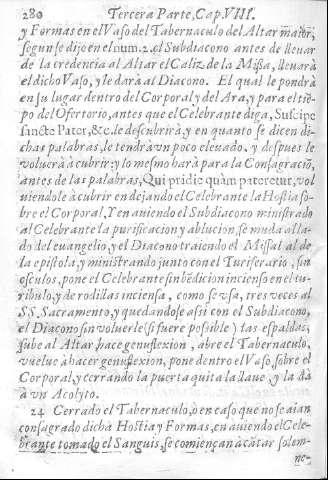 280 Tercera Parte, Cap. VIII.
y Formas en el Vaso del Tabernaculo del Altar maior,
segun se dijo en el num. 2. el Subdiacono antes de llevar
de la credencia al Altar el Caliz de la Missa, llevarà
el dicho Vaso, y le darà al Diacono. El qual le pondrà
en su lugar dentro del Corporal y del Ara, y para el tiē-
po del Ofertorio, antes que el Celebrante diga, Suscipe
sancte Pater, &c. le descubrirà y en quanto se dicen di-
chas palabras, le tendrà un poco elevado, y despues le
volverà à cubrir: y lo mesmo harà para la Consagraciō,
antes de las palabras, Qui pridie quàm pateretur, vol
viendole à cubrir en dejando el Celebrante la Hostia so-
bre el Corporal, Y en aviendo el Subdiacono ministrado
al Celebrante la purificacion y ablucion, se muda al la-
do del euangelio, y el Diacono traiendo el Missal al de
la epistola, y ministrando junto con el Turiferario, sin
osculos, pone el Celebrante sin bēdicion incienso en el tu-
ribulo, y de rodillas inciensa, como se usa, tres veces al
SS. Sacramento, y quedandose assi con el Subdiacono,
el Diacono sin volverle (si fuere posible) las espaldas,
sube al Altar hace genuflexion, abre el Tabernaculo,
vuelve à hacer genuflexion, pone dentro el Vaso, sobre el
Corporal, y cerrando la puerta quita la llave, y la dà
à un Acolyto.
24 Cerrado el Tabernaculo, ò en caso que no se aian
consagrado dicha Hostia y Formas, en aviendo el Cele-
brante tomado el Sanguis, se comiençan à cātar solem-
ne-